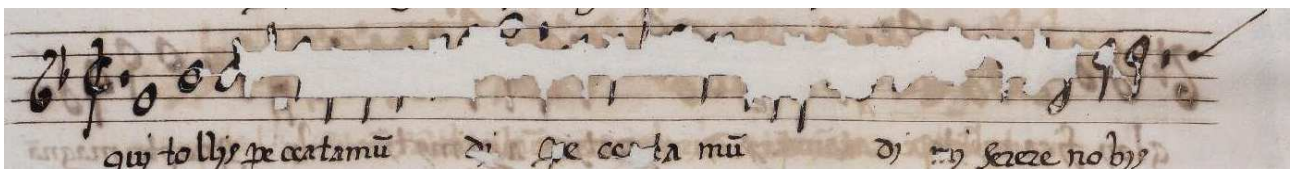 qui tollis peccata mū di pe cca ta mū di mi serere nobis